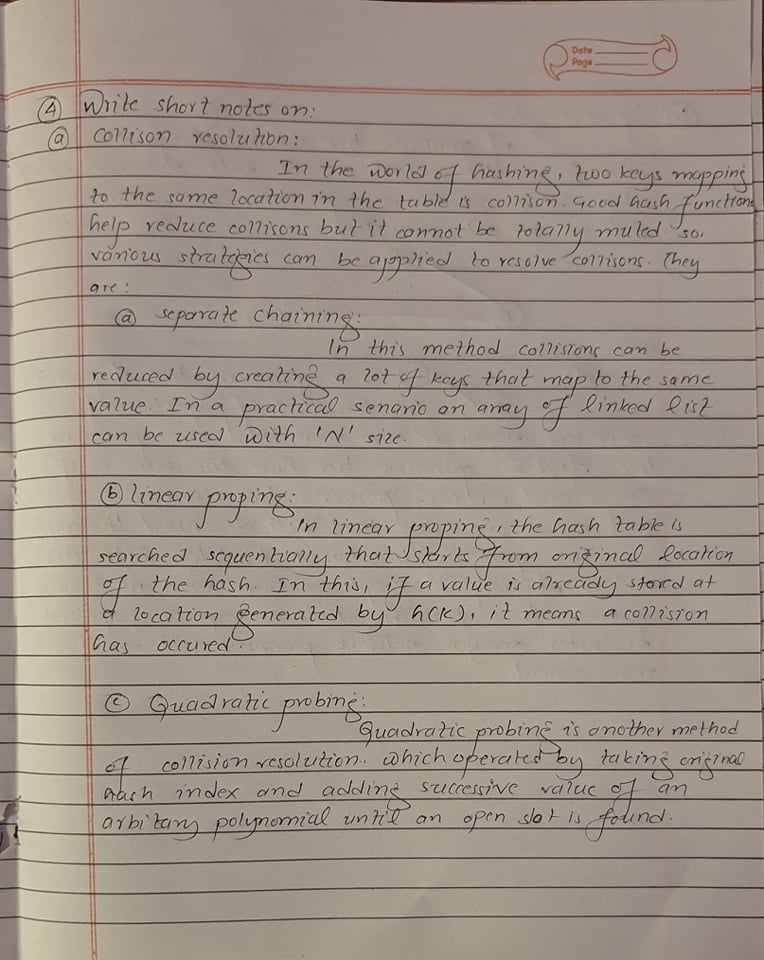 Date
Page
④ Write short notes on:
ⓐ collison resolution:
In the world of hashing, two keys mapping
to the same location in the table is collison. Good hash functions
help reduce collisons but it cannot be totally muled so,
various strategies can be applied to resolve collisons. They
are:
ⓐ separate chaining:
In this method collisions can be
reduced by creating a lot of keys that map to the same
value. In a practical senario an array of linked list
can be used with 'N' size.
ⓑ linear proping:
In linear proping, the hash table is
searched sequentially that starts from original location
of the hash. In this, if a value is already stored at
a location generated by h(k), it means a collision
has occured.
ⓒ Quadratic probing:
Quadratic probing is another method
of collision resolution. which operated by taking original
hash index and adding successive value of an
arbitary polynomial until an open slot is found.